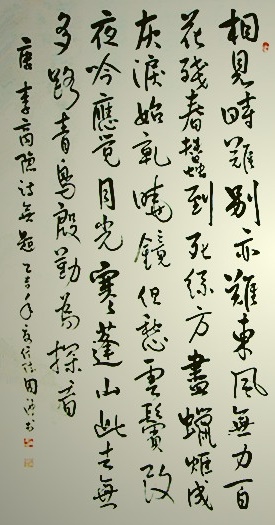 相見時難別亦難東風無力百
花殘春蠶到死絲方盡蠟炬成
灰淚始乾曉鏡但愁雲鬢改
夜吟應覺月光寒蓬山此去無
多路青鳥殷勤為探看
唐李商隱詩無題